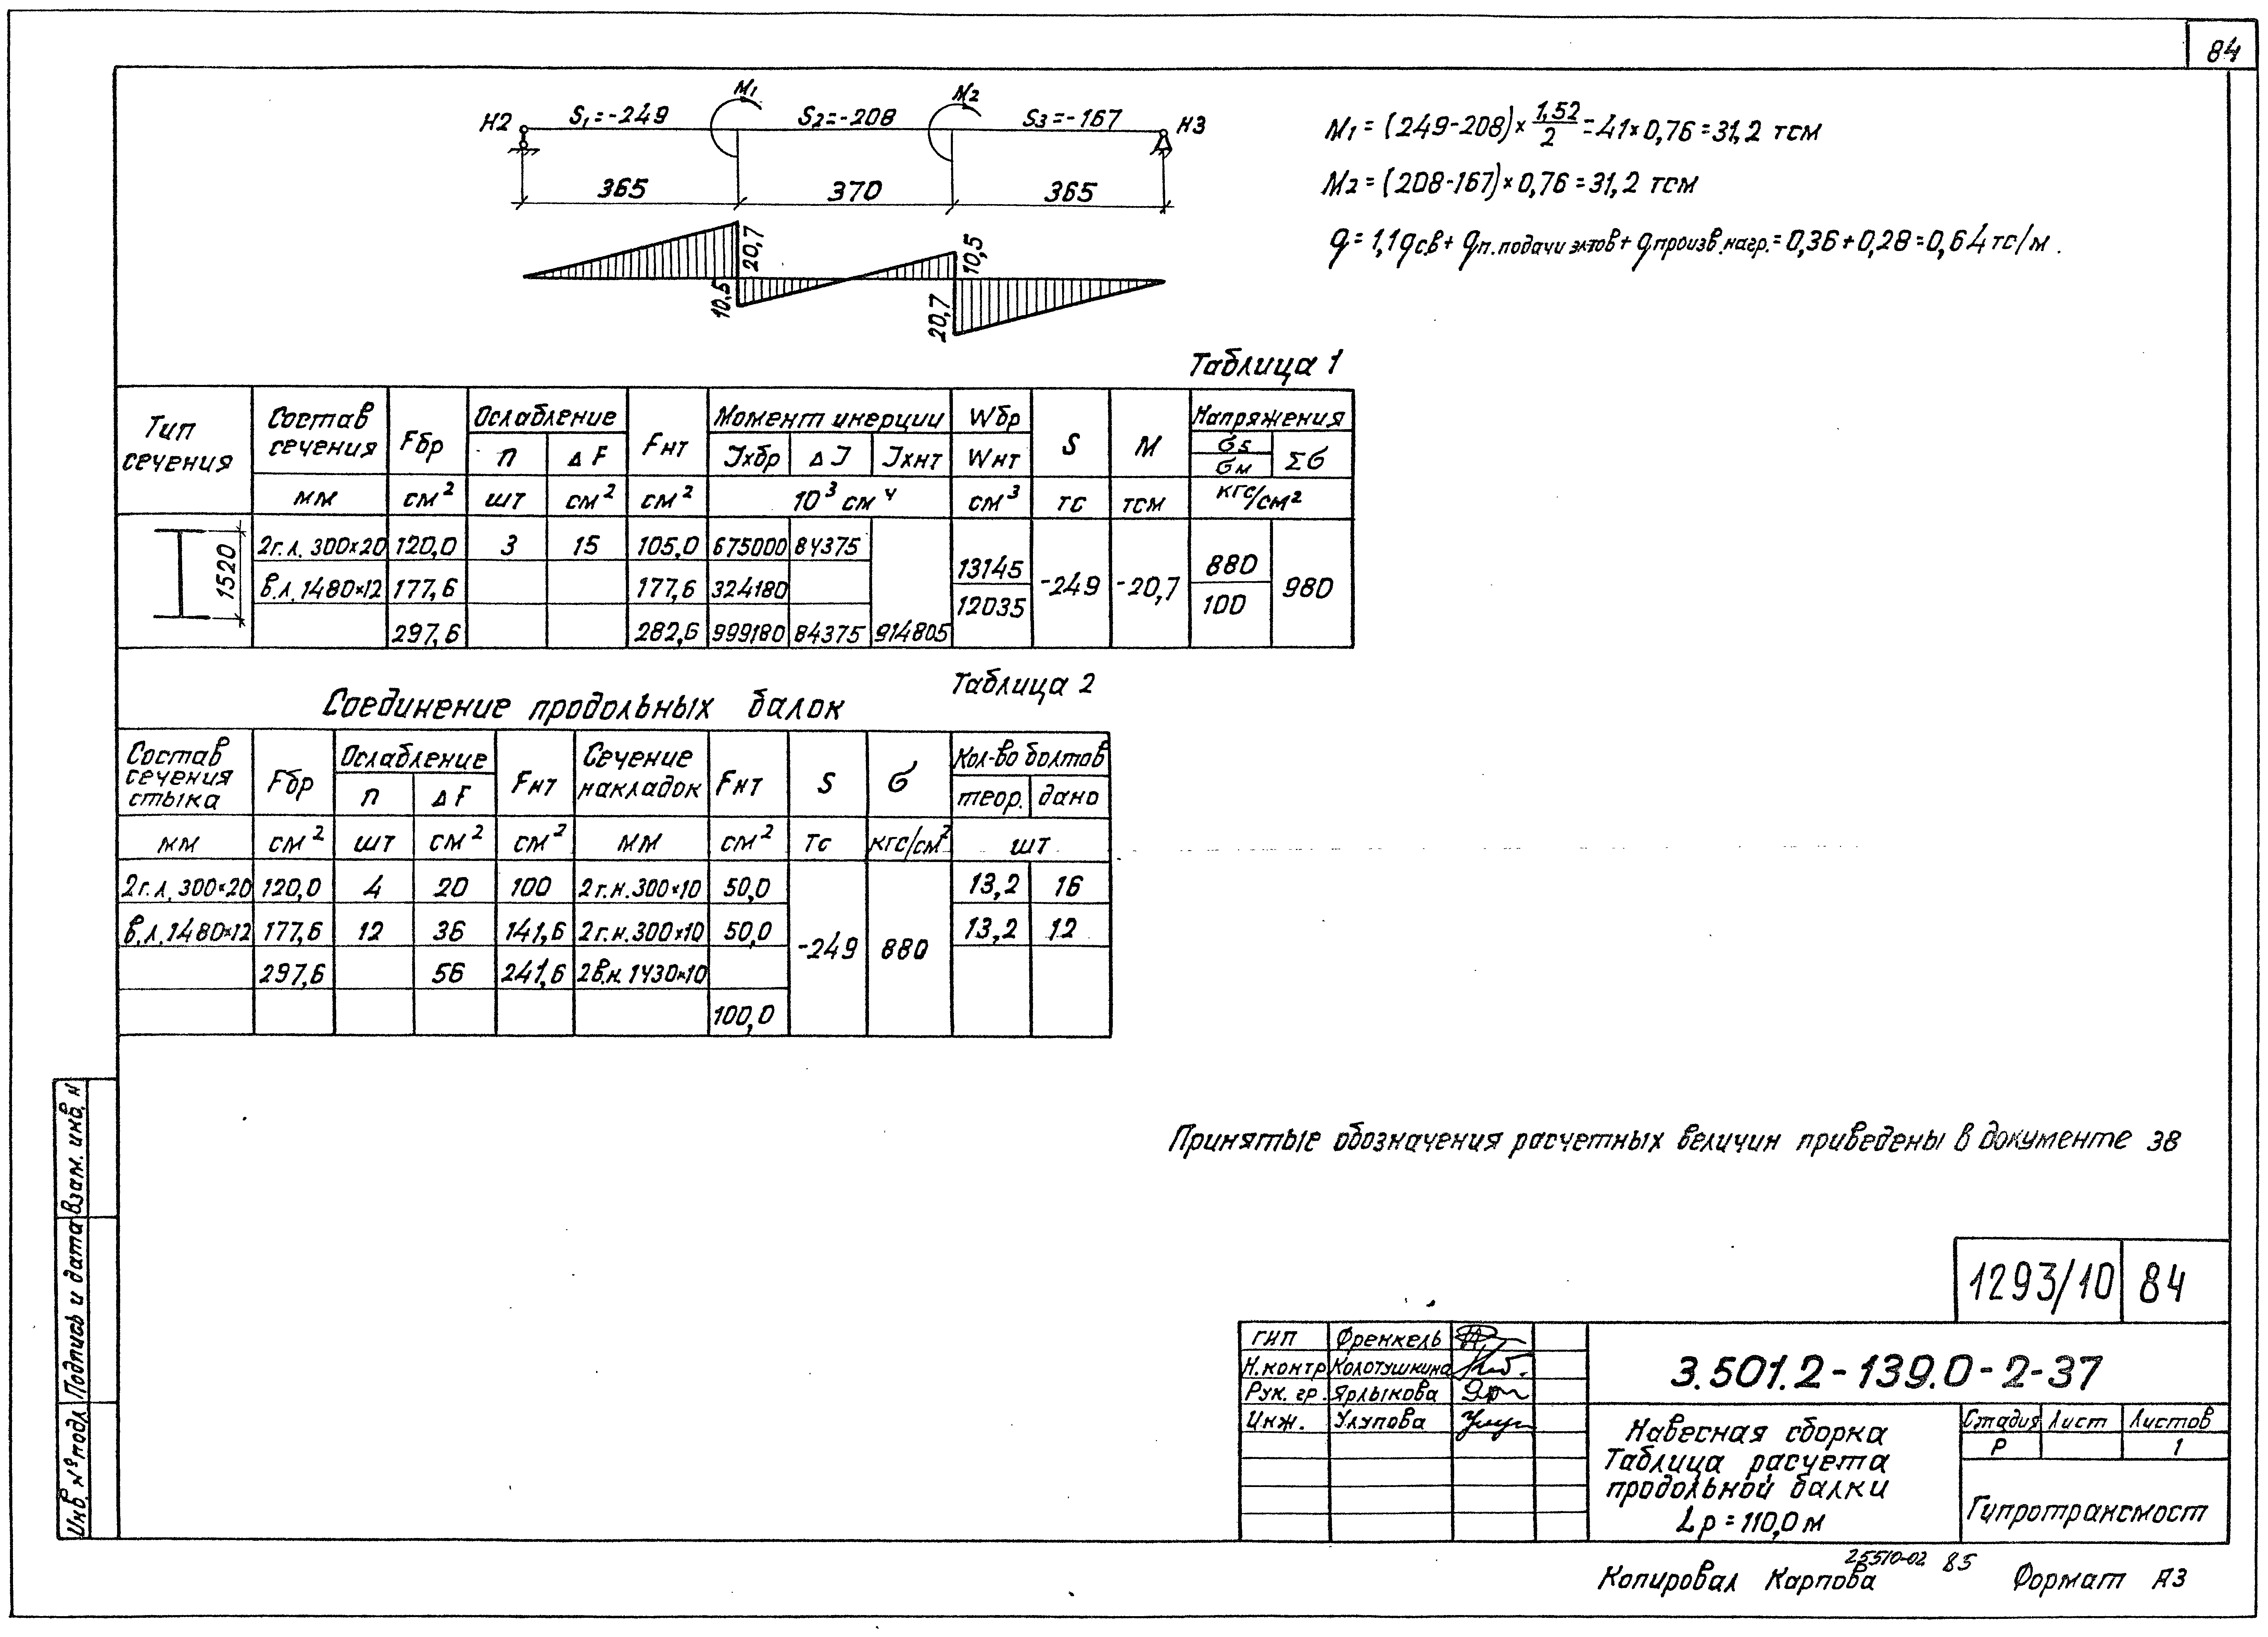 84
H2 S₁=-249 M₁ S₂=-208 M₂ S₃=-167 H3
365 370 365
20,7 10,5 10,5 20,7
M₁ = (249-208) × 1,52/2 = 41 × 0,76 = 31,2 тсм
M₂ = (208-167) × 0,76 = 31,2 тсм
q = 1,1 qсв + qп. подачи эл-тов + q произв. нагр. = 0,36 + 0,28 = 0,64 тс/м.
Таблица 1
Тип сечения | Состав сечения | Fбр | Ослабление | Fнт | Момент инерции | Wбр | S | M | Напряжения
п | ΔF | Jхбр | ΔJ | Jхнт | Wнт | σs/σм | Σσ
мм | см² | шт | см² | см² | 10³ см⁴ | см³ | тс | тсм | кгс/см²
1520 | 2г.л. 300×20 | 120,0 | 3 | 15 | 105,0 | 675000 | 84375
в.л. 1480×12 | 177,6 | 177,6 | 324180 | 13145 / 12035 | -249 | -20,7 | 880 / 100 | 980
297,6 | 282,6 | 999180 | 84375 | 914805
Таблица 2
Соединение продольных балок
Состав сечения стыка | Fбр | Ослабление | Fнт | Сечение накладок | Fнт | S | σ | Кол-во болтов
п | ΔF | теор. | дано
мм | см² | шт | см² | см² | мм | см² | тс | кгс/см² | шт
2г.л. 300×20 | 120,0 | 4 | 20 | 100 | 2г.н. 300×10 | 50,0 | -249 | 880 | 13,2 | 16
в.л. 1480×12 | 177,6 | 12 | 36 | 141,6 | 2г.н. 300×10 | 50,0 | 13,2 | 12
297,6 | 56 | 241,6 | 2в.н. 1430×10
100,0
Принятые обозначения расчетных величин приведены в документе 38
Взам. инв. н
Подпись и дата
Инв. № подл.
1293/10 84
ГИП Френкель
Н.контр Колотушкина
Рук. гр. Ярлыкова
Инж. Улупова
3.501.2-139.0-2-37
Навесная сборка
Таблица расчета
продольной балки
Lр = 110,0 м
Стадия Лист Листов
Р 1
Гипротрансмост
25510-02 85
Копировал Карпова Формат А3